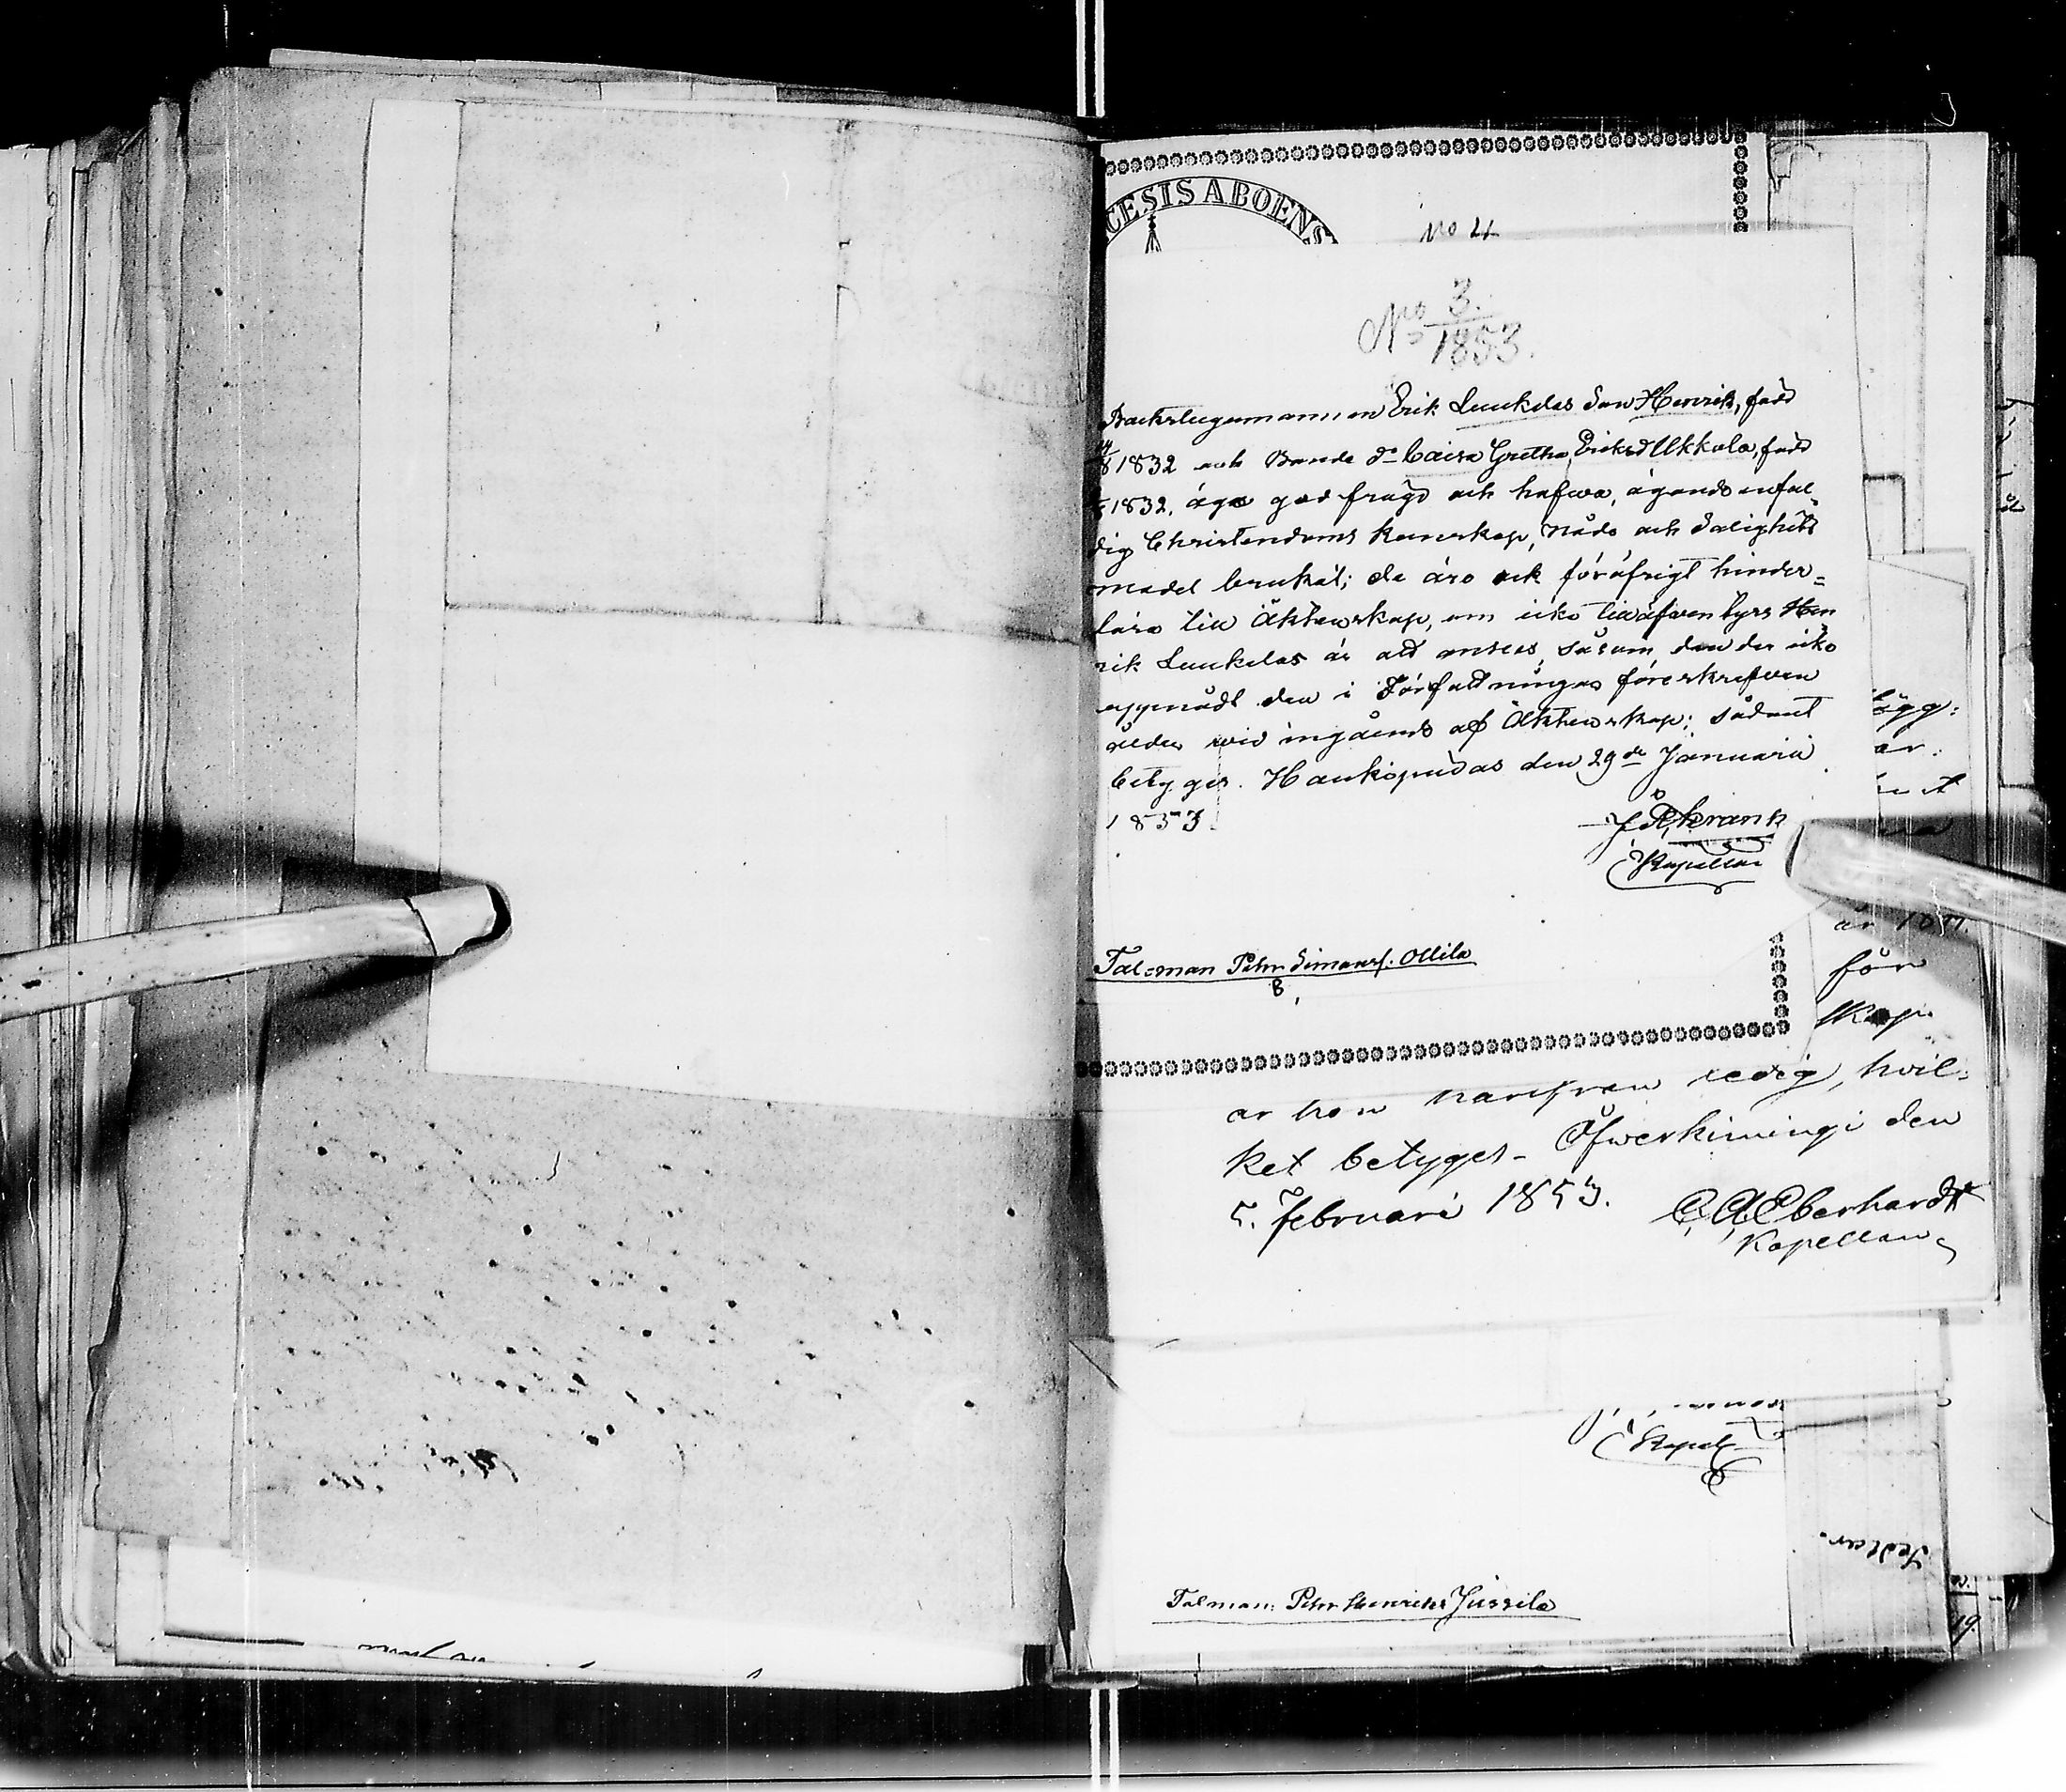 CESIS ABOENS
No 4
No 3.
1853.
Backstugumannen Erik Luukelas Son Henrik, född
1832 och Bonde do Caisa Gretha Ericksd Ukkola, född
1832, äga god frägd och hafwa, ägande enfal-
dig Christendoms kunskap, Nåde och Salighets
medel brukat; de äro ock föröfrigt hinder=
lösa till Äktenskap, om icke till äfwentyrs Hen
rik Luukelas är att anses, såsom den der icke
uppnådt den i Författningar föreskrefven
ålder wid ingående af Äktenskap; sådant
betyges. Haukipudas den 29de Januarii
1853.
J Åkrank
Kapellan
Talеman Pehr Simonss. Ollila
8
ögg:
ar.
för
skap.
är hon härifrån ledig, hvil=
ket betyges. Öfwerkiimingi den
5. Februari 1853.
C. A. Eberhardt
Kapellan
Kapel
Sedlar.
Talman: Pehr Henrikss Jussila
19.